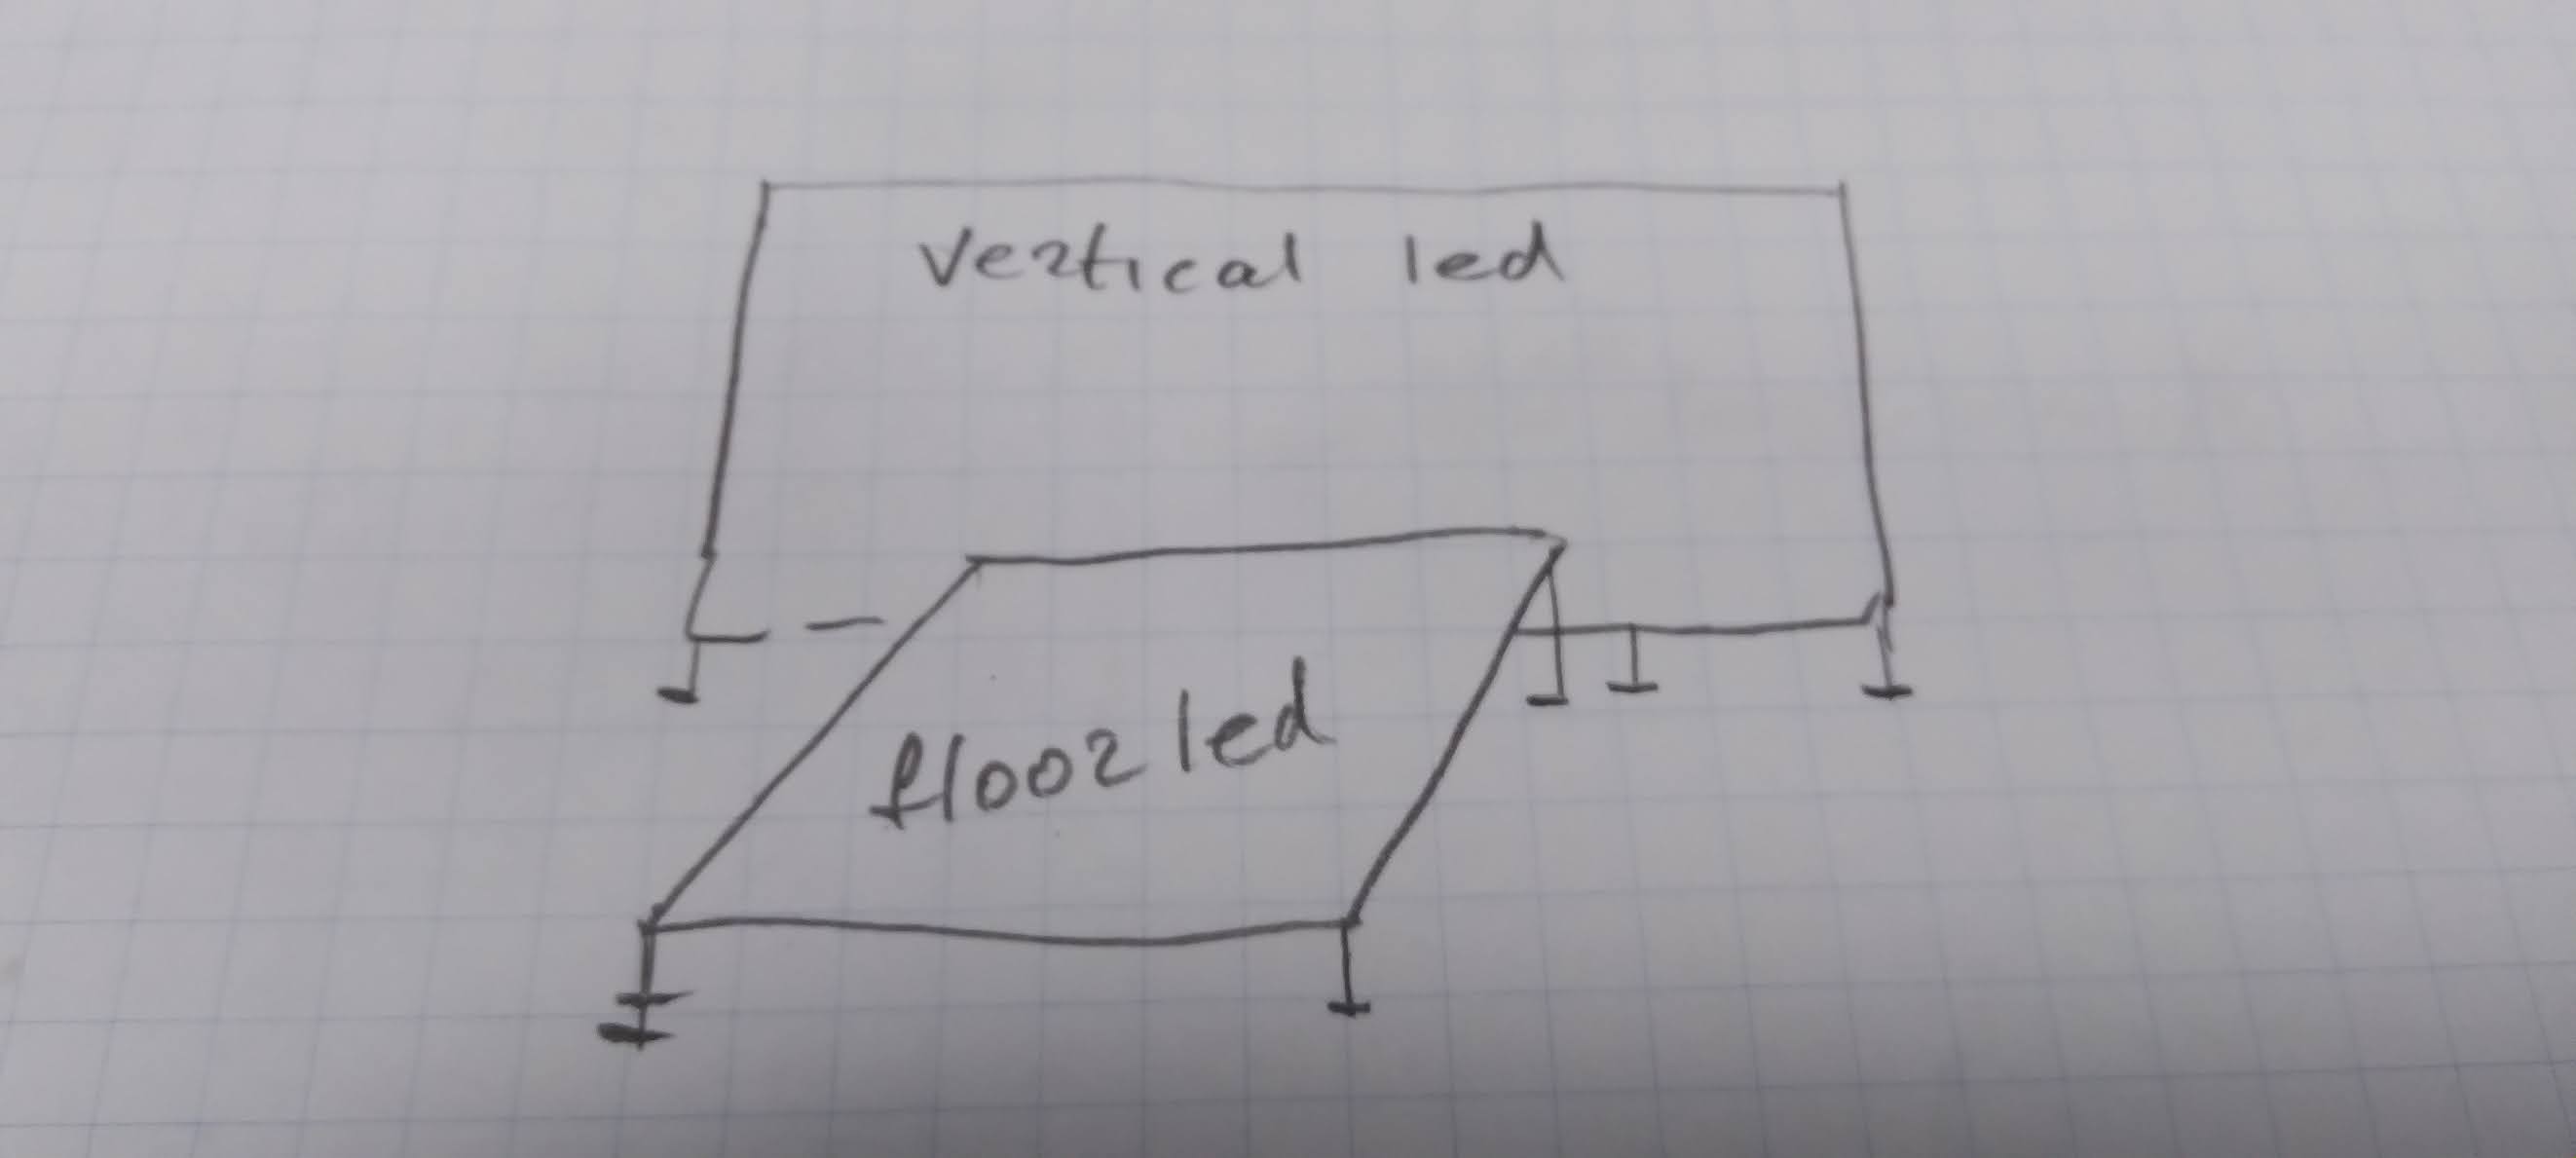 Vertical led
floor led